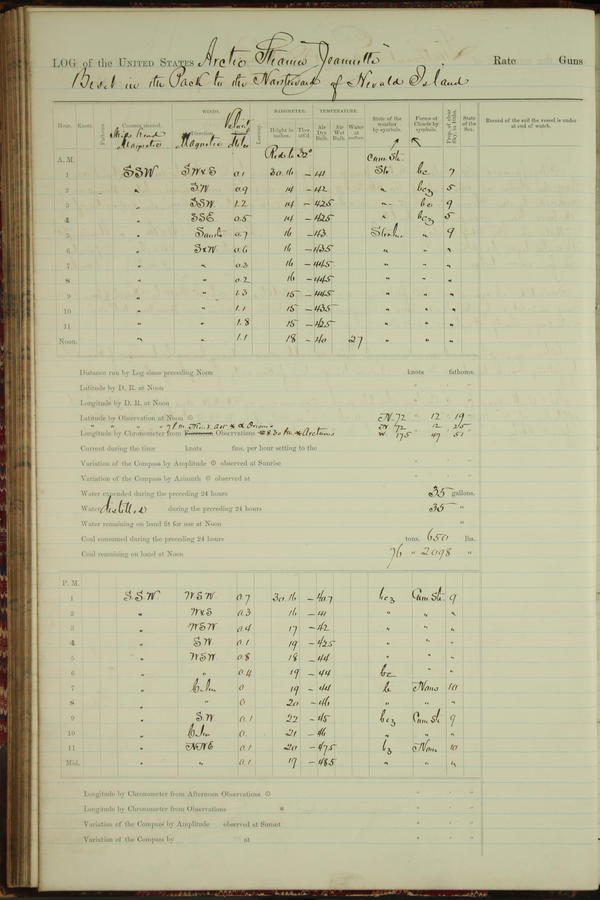 LOG of the UNITED STATES Arctic Steamer Jeannette Rate Guns
Beset in the Pack to the Northward of Herald Island
Hour. Knots. Fathoms. Courses steered. WINDS. Leeway. BAROMETER. TEMPERATURE. State of the weather by symbols. Forms of Clouds by symbols. Prop. of clear Sky, in 10ths. State of the Sea. Record of the sail the vessel is under at end of watch.
Ship's Head Magnetic Direction. Magnetic Velocity Miles Height in inches. Ther. att'd. Air Dry Bulb. Air Wet Bulb. Water at surface.
Red. to 32°
A. M. Cum. Str.
1 SSW SWxS 0.1 30.16 -41 Str. bc 7
2 " SW 0.9 14 -42 " bcz 5
3 " SSW 1.2 14 -42.5 " bc 9
4 " SSE 0.5 14 -42.5 " bcz 5
5 " South 0.7 16 -43 " 9
6 " SxW 0.6 16 -43.5 " " "
7 " " 0.3 16 -44.5 " " "
8 " " 0.2 16 -44.5 " " "
9 " " 1.3 15 -44.5 " " "
10 " " 1.1 15 -43.5 " " "
11 " " 1.8 15 -42.5 " " "
Noon. " " 1.1 18 -40 27 " " "
Distance run by Log since preceding Noon knots fathoms.
Latitude by D. R. at Noon ° ' "
Longitude by D. R. at Noon ° ' "
Latitude by Observation at Noon N. 72 12 19
" " " " 7 P.m. α Orionis N 72 " 25
Longitude by Chronometer from Forenoon Observations 8.30 Arcturus W 175 47 51
Current during the time knots fms. per hour setting to the
Variation of the Compass by Amplitude observed at Sunrise ° ' "
Variation of the Compass by Azimuth observed at ° ' "
Water expended during the preceding 24 hours 35 gallons.
Water distilled during the preceding 24 hours 35 "
Water remaining on hand fit for use at Noon "
Coal consumed during the preceding 24 hours tons. 650 lbs.
Coal remaining on hand at Noon 76 " 2098 "
P. M.
1 SSW WSW 0.7 30.16 -40.7 bcz Cum. Str. 9
2 " WxS 0.3 16 -41 " " "
3 " WSW 0.4 17 -42 " " "
4 " SW 0.1 19 -42.5 " " "
5 " WSW 0.8 18 -44 " " "
6 " " 0.4 19 -44 bc " "
7 " Calm 0 19 -44 b None 10
8 " " 0 20 -46 " " "
9 " SW 0.1 22 -45 bcz Cum. Str. 9
10 " Calm 0. 21 -46 " " "
11 " NNE 0.1 20 -47.5 bz None 10
Mid. " " 0.1 19 -48.5 " " "
Longitude by Chronometer from Afternoon Observations ° ' "
Longitude by Chronometer from Observations * ° ' "
Variation of the Compass by Amplitude observed at Sunset ° ' "
Variation of the Compass by at ° ' "